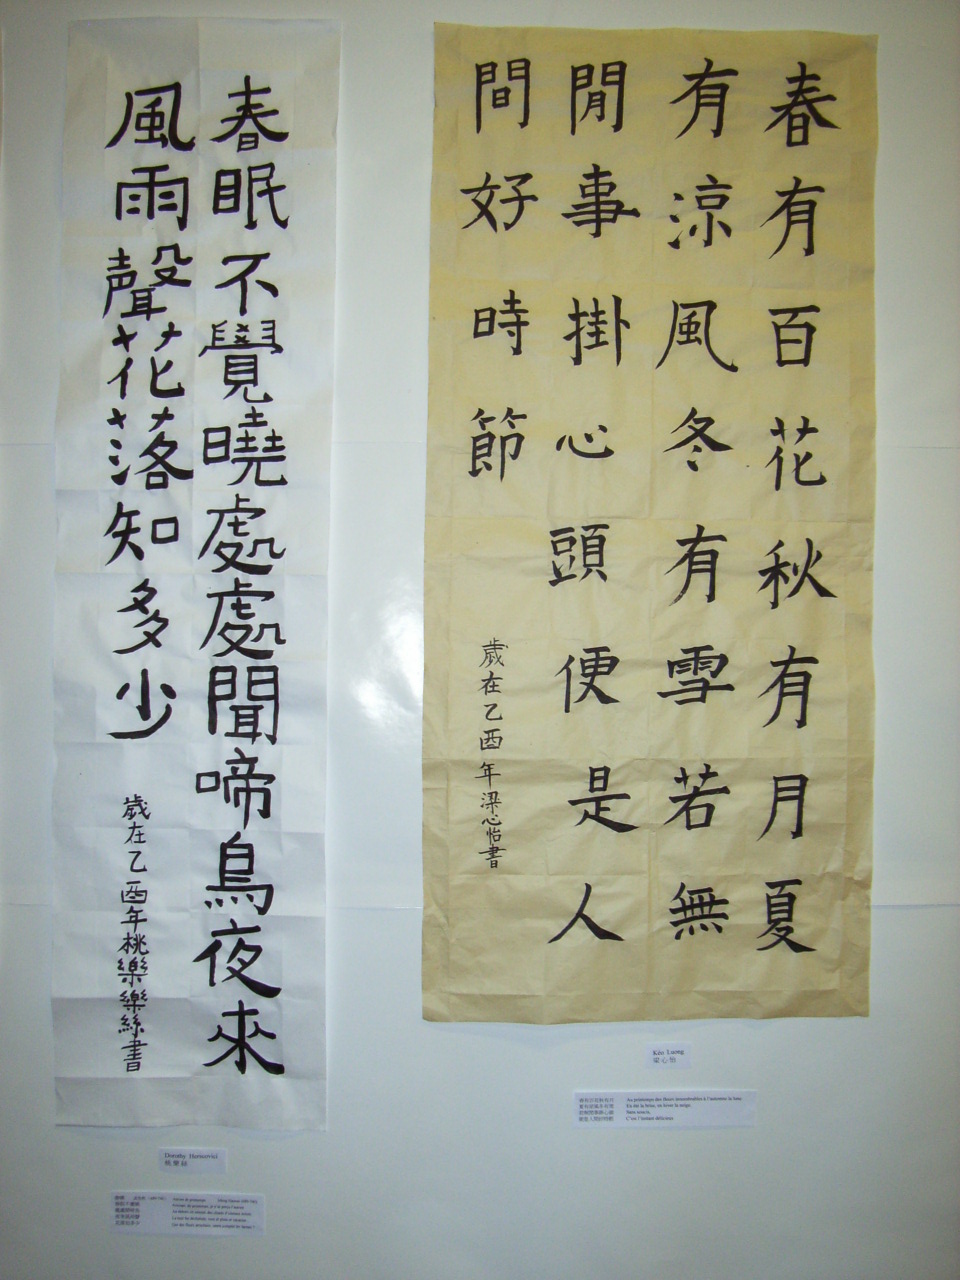 春有百花秋有月夏
有涼風冬有雪若無
閒事掛心頭便是人
間好時節
歲在乙酉年梁心怡書
春眠不覺曉處處聞啼鳥夜來
風雨聲花落知多少
歲在乙酉年桃樂樂絲書
Kéo Luong
梁心怡
Au printemps des fleurs innombrables à l'automne la lune
En été la brise, en hiver la neige.
Sans soucis,
C'est l'instant délicieux
Dorothy